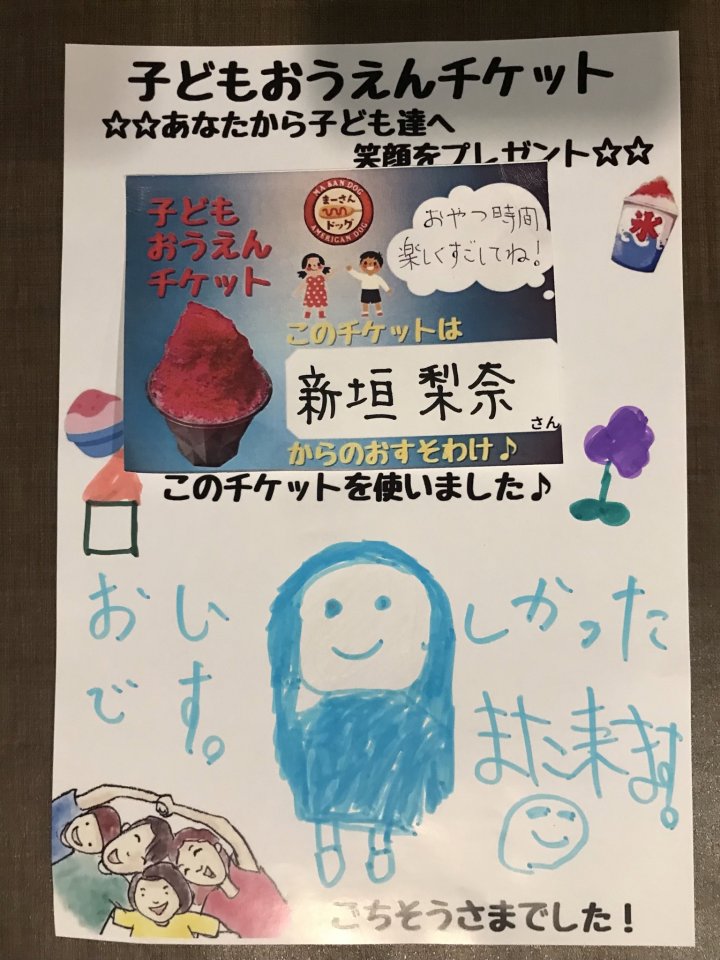 子どもおうえんチケット
☆☆あなたから子ども達へ
笑顔をプレゼント☆☆
子ども
おうえん
チケット
MA SAN DOG
まーさん
ドッグ
AMERICAN DOG
おやつ時間
楽しくすごしてね!
氷
このチケットは
新垣 梨奈
さん
からのおすそわけ♪
このチケットを使いました♪
おいしかった
です。
また来ます。
ごちそうさまでした!